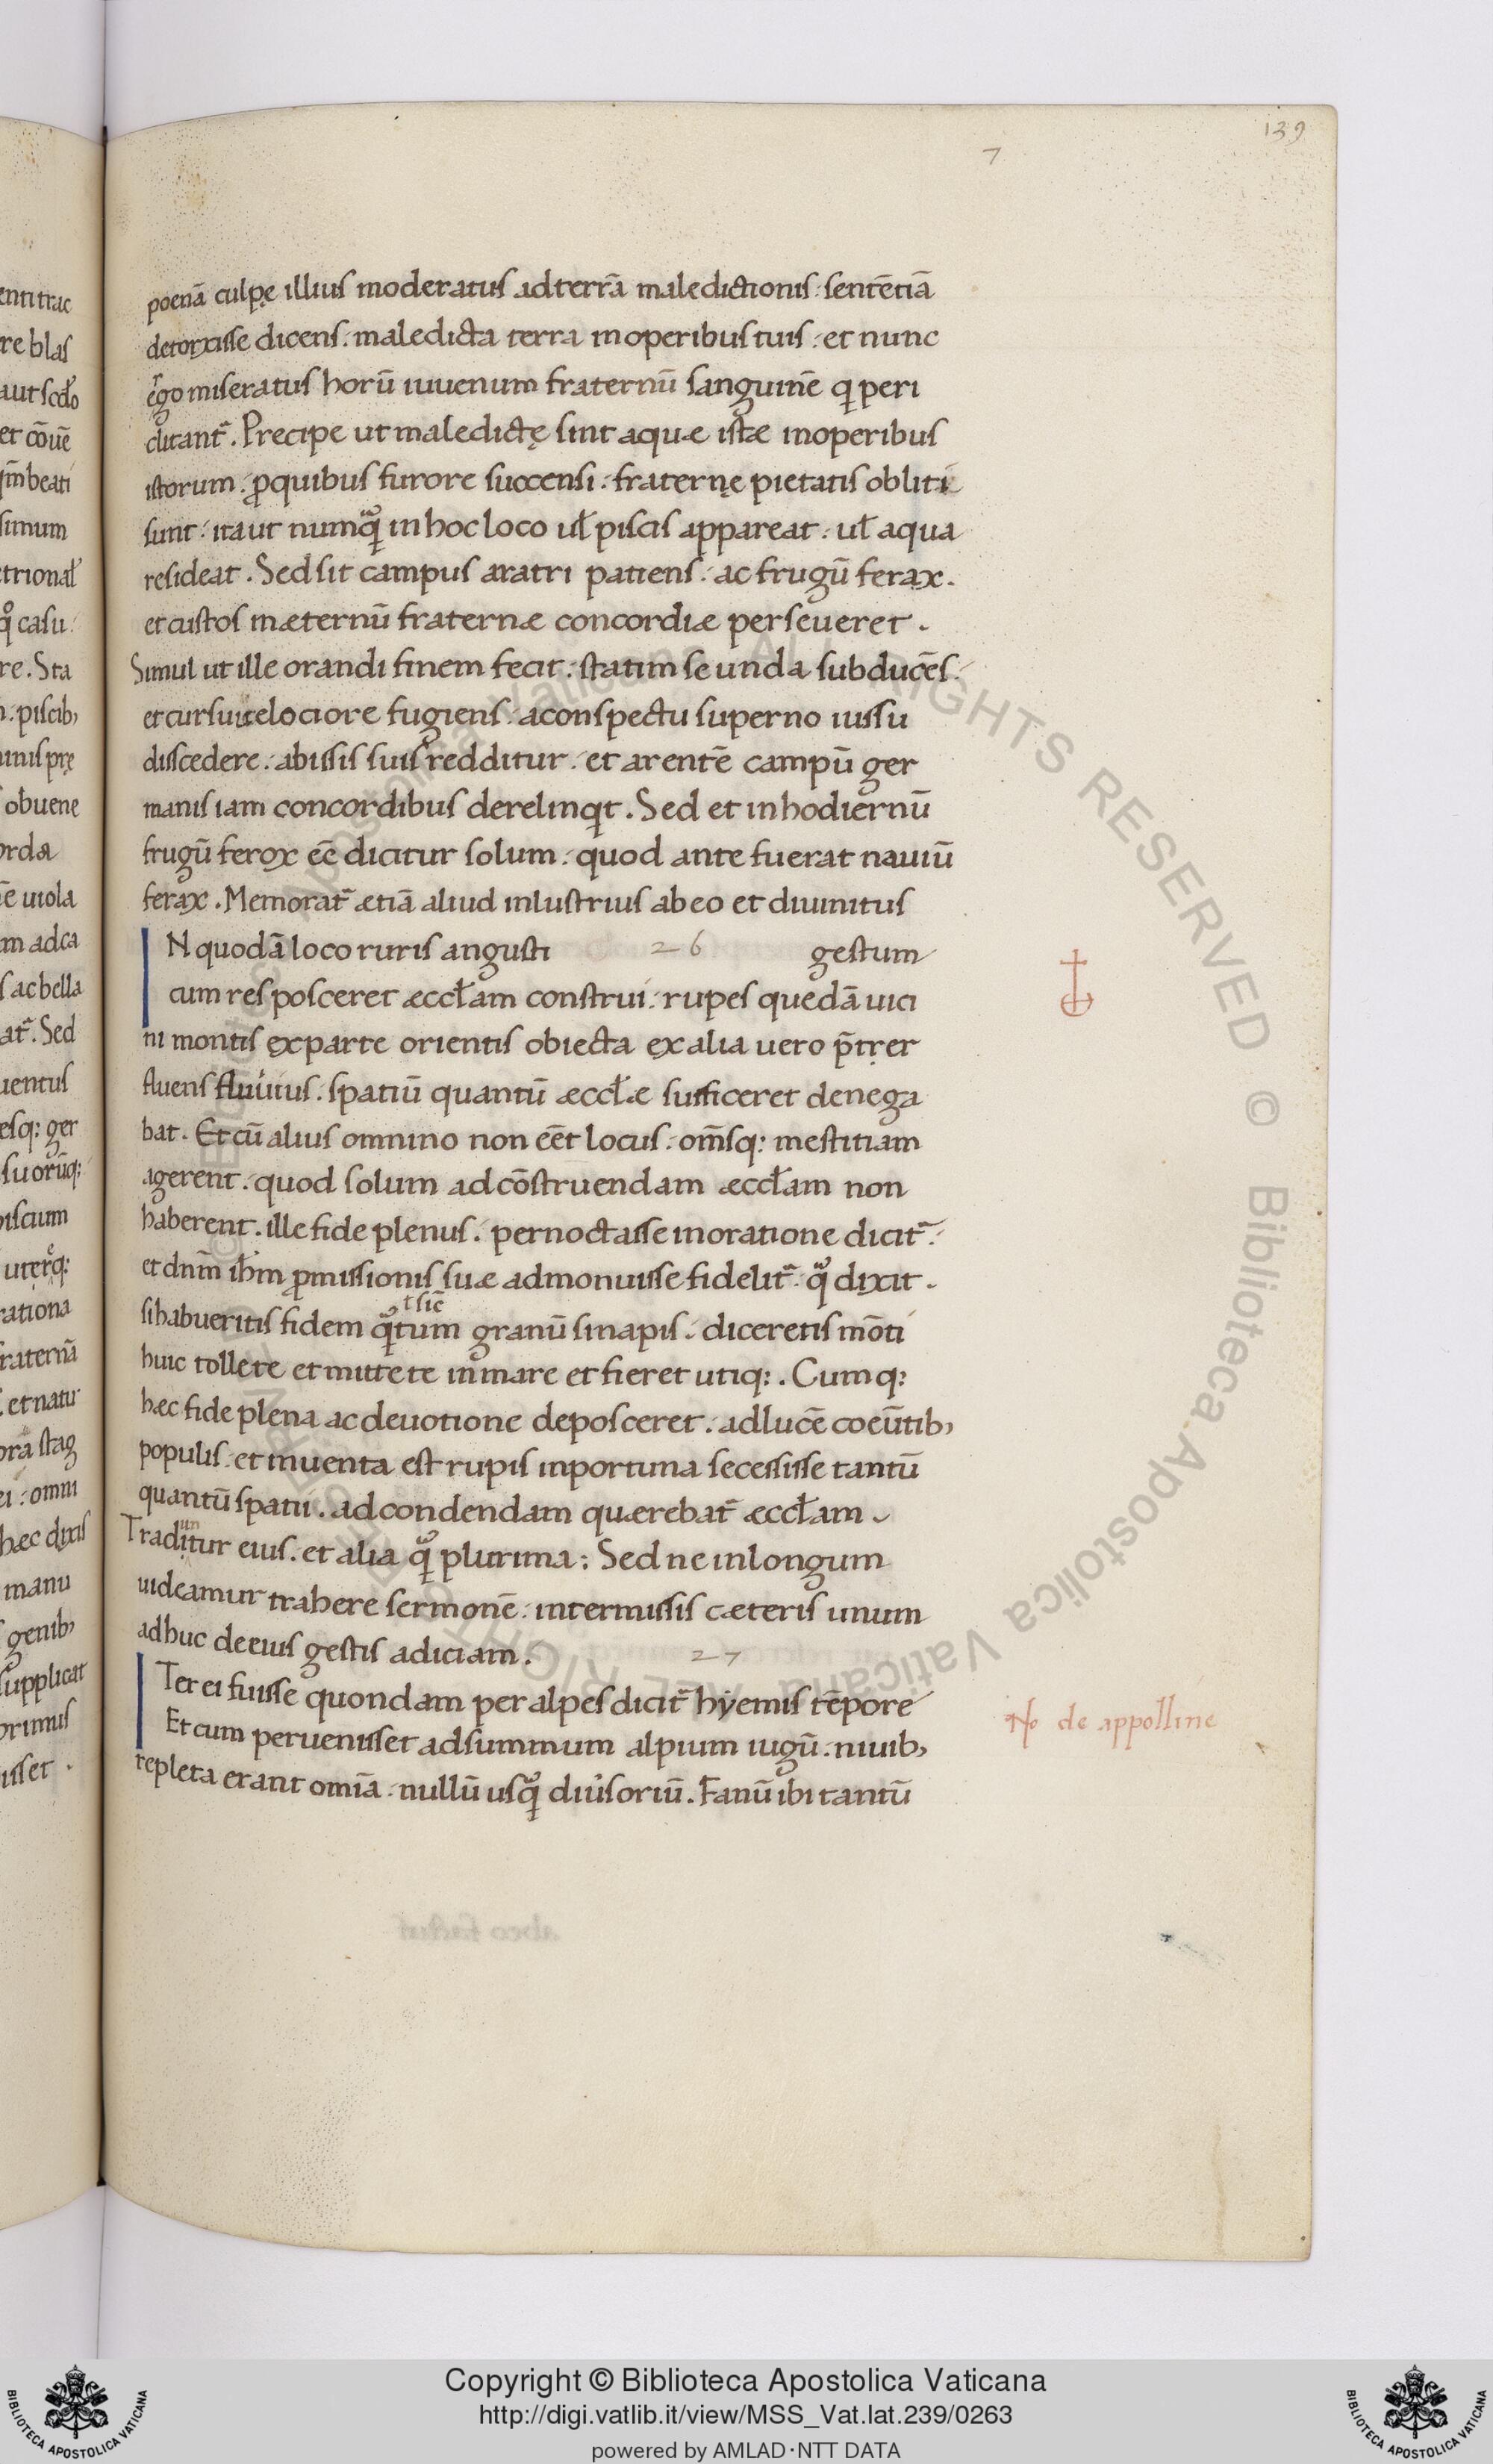 139
7
poenā culpę illius moderatus adterrā maledictionis : sentētiā
detorxisse dicens : maledicta terra inoperibus tuis : et nunc
ergo miseratus horū iuuenum fraternū sanguinē qi peri
ditant᷑ . Precipe ut maledictę sint aquae istae inoperibus
istorum : ꝓquibus furore succensi : fraternę pietatis obliti
sunt : ita ut numqͣ in hoc loco ul̄ piscis appareat : ul̄ aqua
resideat . Sed sit campus aratri patiens : ac frugū ferax .
et custos inaeternū fraternae concordiae perseueret .
Simul ut ille orandi finem fecit : statim se unda subducēs :
et cursu uelociore fugiens : aconspectu superno iussu
discedere : abissis suis redditur : et arentē campū ger
manis iam concordibus derelinqit . Sed et inhodiernū
frugū ferox eē dicitur solum : quod ante fuerat nauiū
ferax . Memorat᷑ aetiā aliud inlustrius ab eo et diuinitus
IN quodā loco ruris angusti 26 gestum
cum res posceret aeccl̄am construi : rupes quedā uici
ni montis ex parte orientis obiecta ex alia uero p̄trer
fluens fluuius : spatiū quantū aeccl̄ae sufficeret denega
bat . Et cū alius omnino non eēt locus : om̄sq: mestitiam
agerent : quod solum adcōstruendam aeccl̄am non
haberent . ille fide plenus : pernoctasse inoratione dicit᷑ :
et dnm̄ ihm̄ ꝓmissionis suae admonuisse fidelit᷑ : qͣ dixit .
ł sic̄
si habueritis fidem qͣtum granū sinapis : diceretis mōti
huic tollete et mittete inmare et fieret utiq: . Cumq:
haec fide plena ac deuotione deposceret : adlucē coeūtib;
populis : et inuenta est rupis inportuna secessisse tantū
quantū spatii : ad condendam quaerebat᷑ aeccl̄am .
un
Traditur eius : et alia qͣ plurima : Sed ne inlongum
uideamur trahere sermonē : intermissis caeteris unum
adhuc de eius gestis adiciam . 27
ITer ei fuisse quondam per alpes dicit᷑ hyemis tēpore
Et cum peruenisset adsummum alpium iugū : niuib;
repleta erant omīa : nullū usqͣ diuẜoriū . Fanū ibi tantū
No de appolline
Copyright © Biblioteca Apostolica Vaticana
http://digi.vatlib.it/view/MSS_Vat.lat.239/0263
powered by AMLAD·NTT DATA
BIBLIOTECA APOSTOLICA VATICANA
BIBLIOTECA APOSTOLICA VATICANA